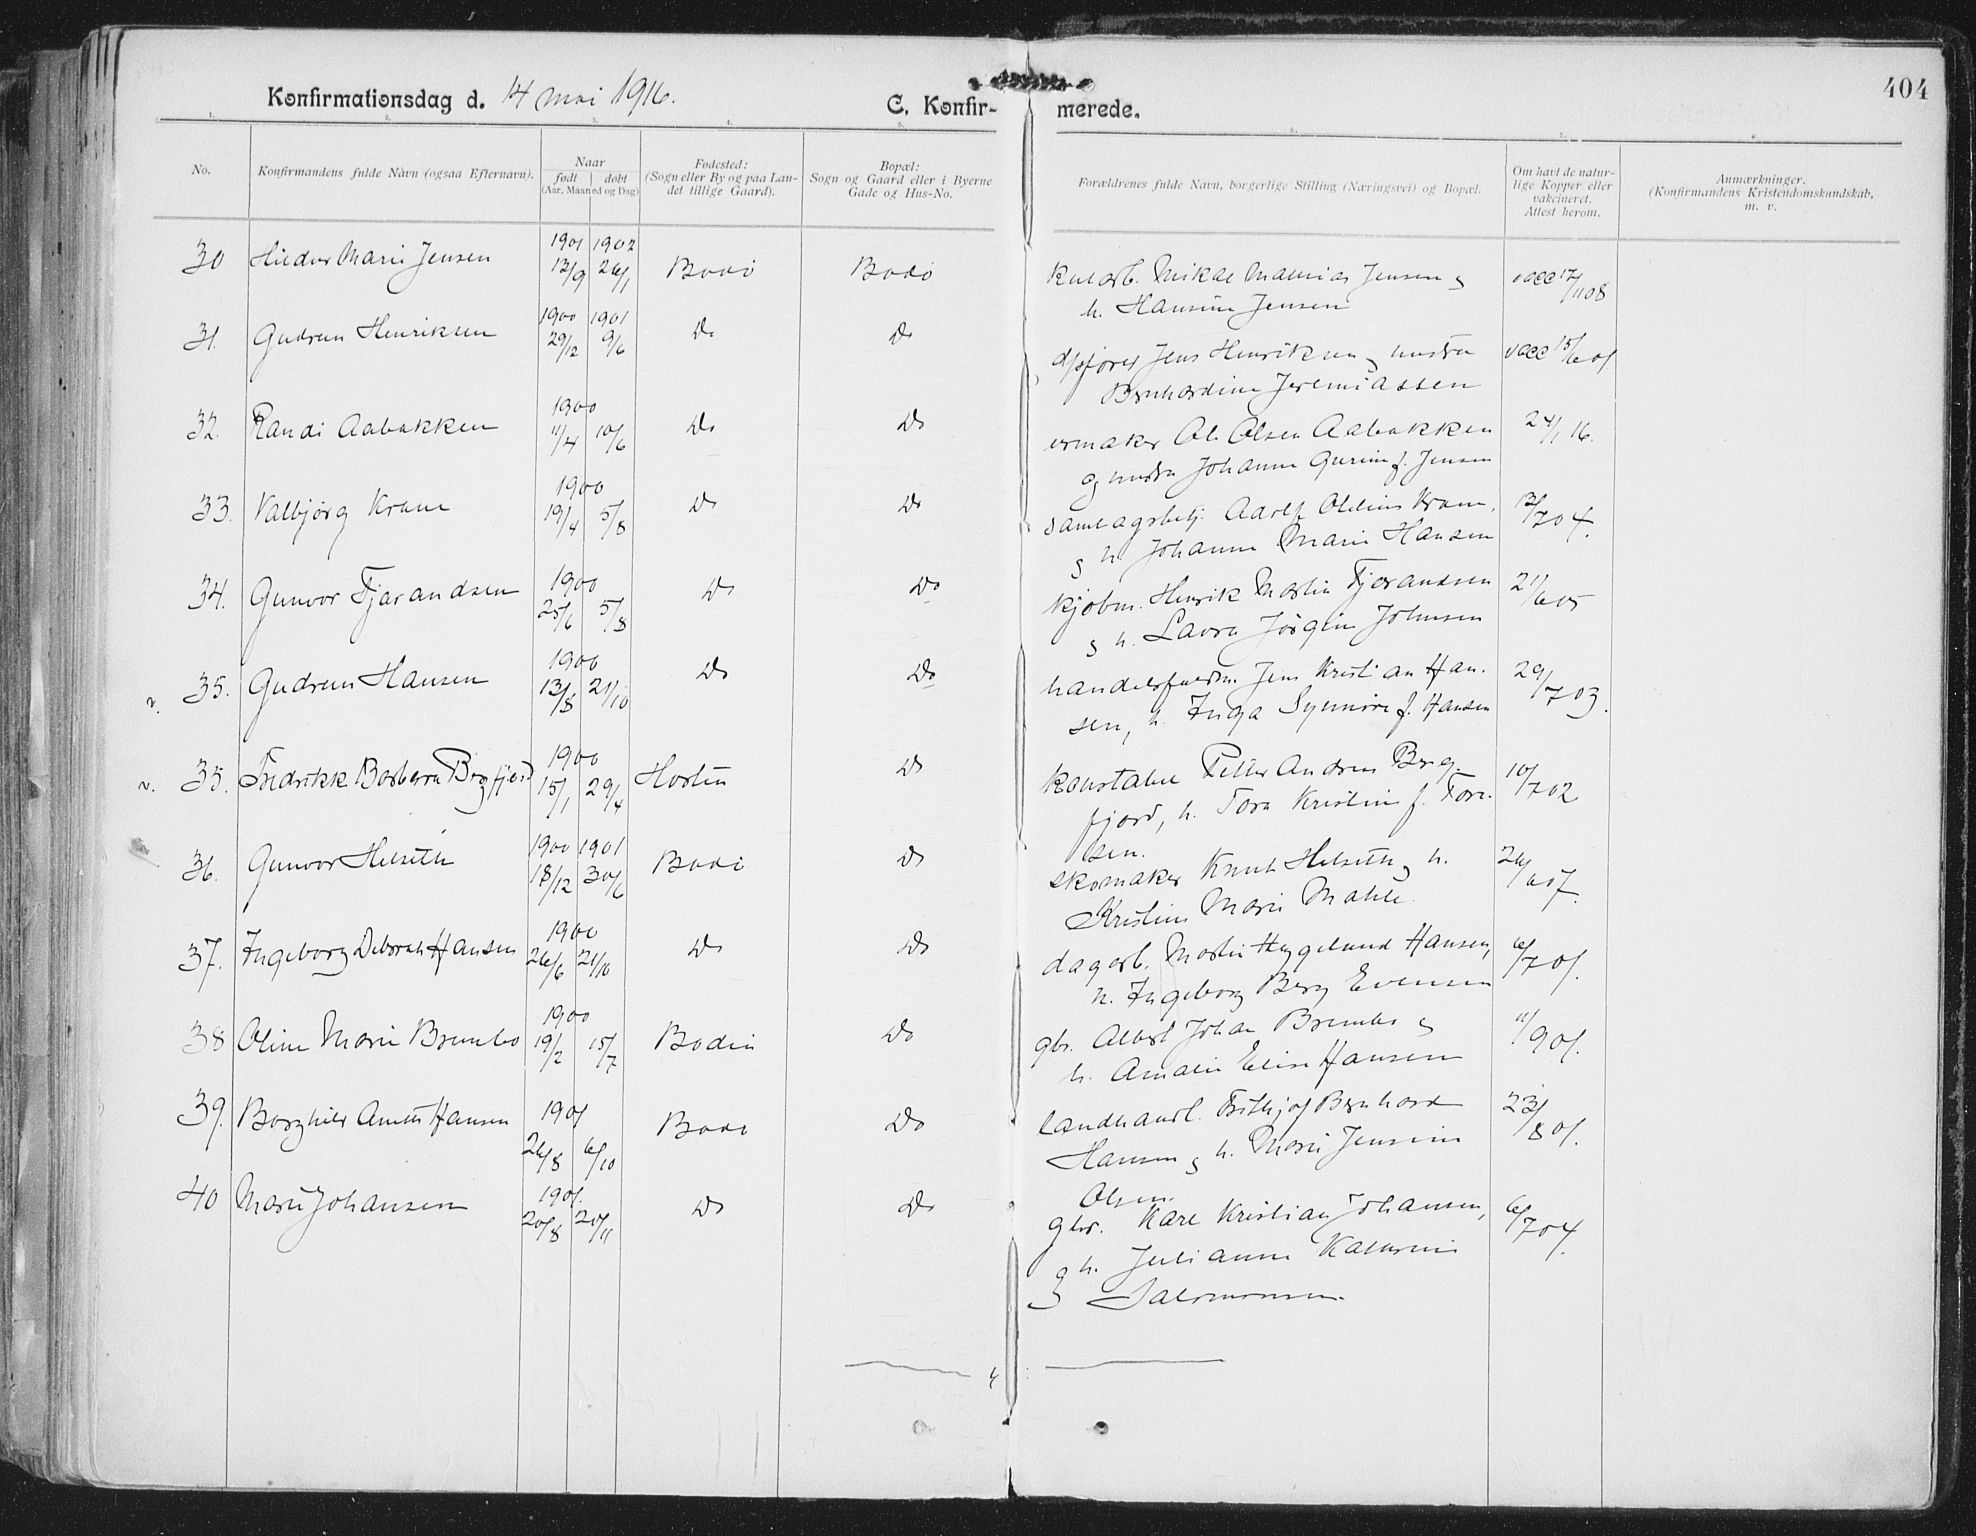 404
Konfirmationsdag d. 14 mai 1916.
C. Konfir- merede.
1. 2. 3. 4. 5. 6. 7. 8.
No.
Konfirmandens fulde Navn (ogsaa Efternavn).
Naar
født | døbt
(Aar, Maaned og Dag)
Fødested:
(Sogn eller By og paa Lan-
det tillige Gaard).
Bopæl:
Sogn og Gaard eller i Byerne
Gade og Hus-No.
Forældrenes fulde Navn, borgerlige Stilling (Næringsvei) og Bopæl.
Om havt de natur-
lige Kopper eller
vakcineret.
Attest herom.
Anmærkninger.
(Konfirmandens Kristendomskundskab,
m. v.
30 Hildur Marie Jensen 1901 13/9 1902 26/1 Bodø Bodø
Mikal Mathias Jensen og vacc 17/11 08
h. Hansine Jensen
31. Gudrun Henriksen 1900 29/12 1901 9/6 Do Do
dpsfører Jens Henriksen og hustru vacc 15/6 01
Bernhardine Jeremiassen
32. Randi Aabakken 1900 11/4 10/6 Do Do
urmaker Ole Olsen Aabakken 24/1 16.
og hustru Johanne Gurine f. Jensen
33. Valbjørg Krane 1900 19/4 5/8 Do Do
samlagsbetj. Adolf Krane, 12/7 04.
og h. Johanne Marie Hansen
34. Gunvor Fjærandsen 1900 25/6 5/8 Do Do
kjøbm. Henrik Martin Fjærandsen 21/6 05
og h. Laura Jørgine Johnsen
2. 35. Gudrun Hansen 1900 13/8 21/10 Do Do
handelsfuldm. Jens Kristian Han- 29/7 03.
sen, h. Inga Synnøve f. Hansen
2. 35. Fredrikke Barbara Bergfjord 1900 15/1 29/4 Horten Do
konstabel Petter Andreas Berg- 10/7 02
fjord, h. Tora Kristine f. Tore-
sen.
36. Gunvor Helseth 1900 18/12 1901 30/6 Bodø Do
skomaker Knut Helseth og h. 26/6 07.
Kristine Marie Mahle.
37. Ingeborg Deborah Hansen 1900 26/6 21/10 Do Do
dagarb. Martin Hygelund Hansen, 6/7 01.
h. Ingeborg Berg Evensen
38 Oline Marie Brembo 1900 19/2 15/7 Bodin Do
gbr. Albert Johan Brembo og 11/9 01.
h. Amalie Elise Hansen
39. Borghild Anette Hansen 1901 26/8 6/10 Bodø Do
landhandl. Frithjof Bernhard 23/8 01.
Hansen og h. Marie Jensine
Olsen.
40 Marie Johansen 1901. 20/8 20/11 Do Do
gbr. Karl Kristian Johansen, 6/7 04.
og h. Julianne Kathrine
Salomonsen.